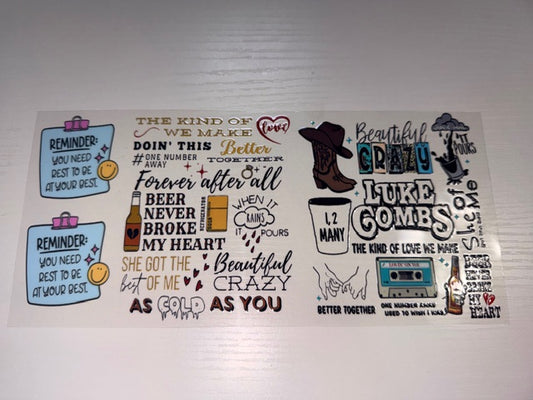 REMINDER:
YOU NEED
REST TO BE
AT YOUR BEST.
REMINDER:
YOU NEED
REST TO BE
AT YOUR BEST.
THE KIND OF
love
WE MAKE
DOIN' THIS Better
TOGETHER
#ONE NUMBER
AWAY
Forever after all
BEER
NEVER
BROKE
MY HEART
REFRIGERATOR
DOOR
WHEN IT
RAINS
IT POURS
SHE GOT THE
best OF ME
Beautiful
CRAZY
AS COLD AS YOU
Beautiful
CRAZY
IT
POURS
LUKE
COMBS
THE KIND OF LOVE WE MAKE
1, 2
MANY
She
of
Me
BETTER TOGETHER
ONE NUMBER AWAY
USED TO WISH I WAS
BEER
NEVER
BROKE
MY
HEART